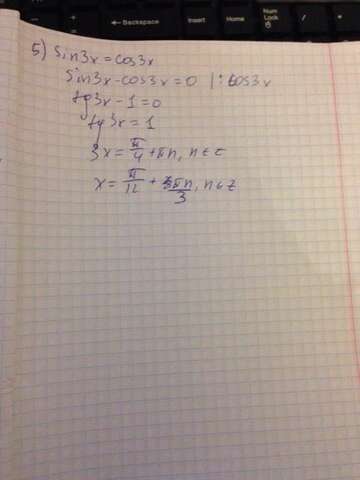 ← Backspace
Insert
Home
Num Lock
5) sin3x = cos3x
sin3x - cos3x = 0 | : cos3x
tg3x - 1 = 0
tg3x = 1
3x = π/4 + πn, n ∈ z
x = π/12 + πn/3, n ∈ z